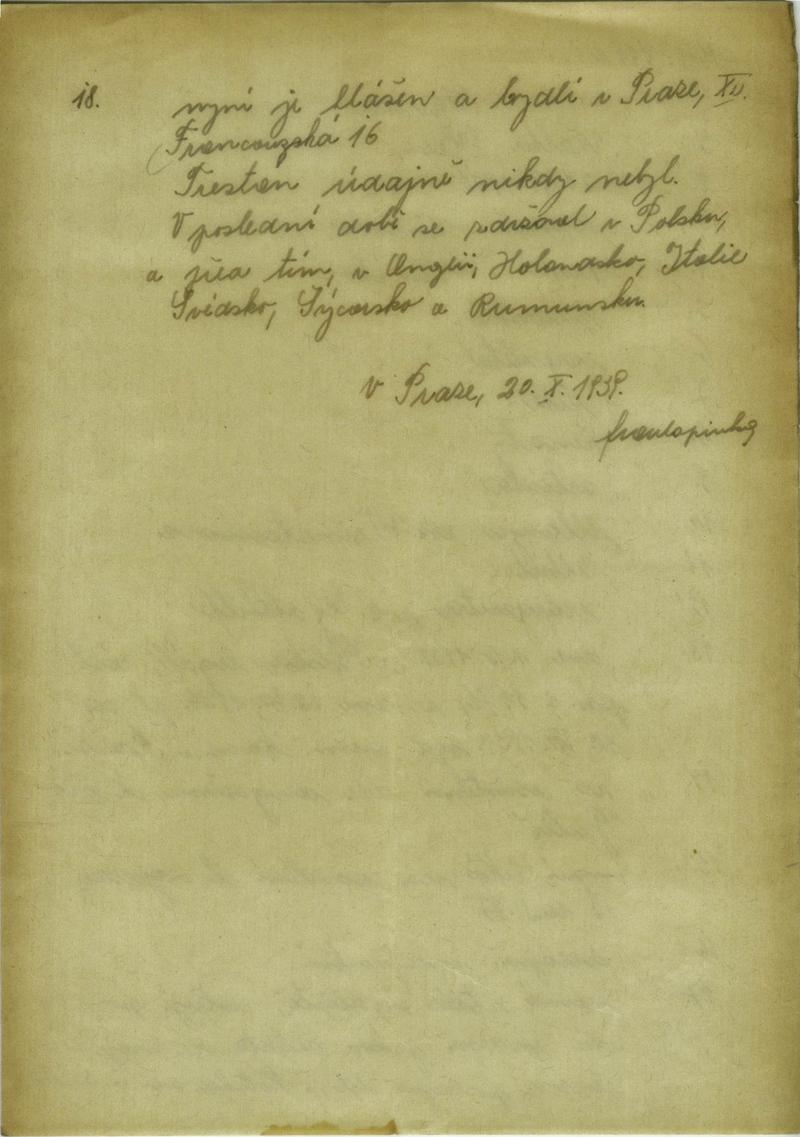 18. nyní je hlášen a bydlí v Praze, XII.
Francouzská 16
Trestán údajně nikdy nebyl.
V poslední době se zdržoval v Polsku,
a před tím, v Anglii, Holandsko, Italie
Švédsko, Švýcarsko a Rumunsku.
V Praze, 20. X. 1939.